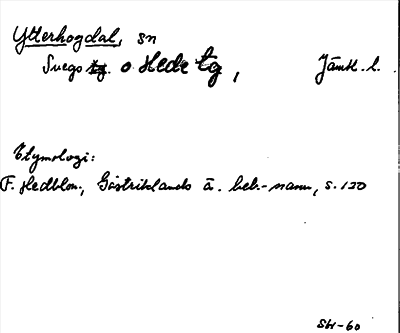 Ytterhogdal, sn
Svegs tg. o. Hede tg, Jämtl. l.
Etymologi:
F. Hedblom, Gästriklands ä. beb.-namn, s. 130
SH-60